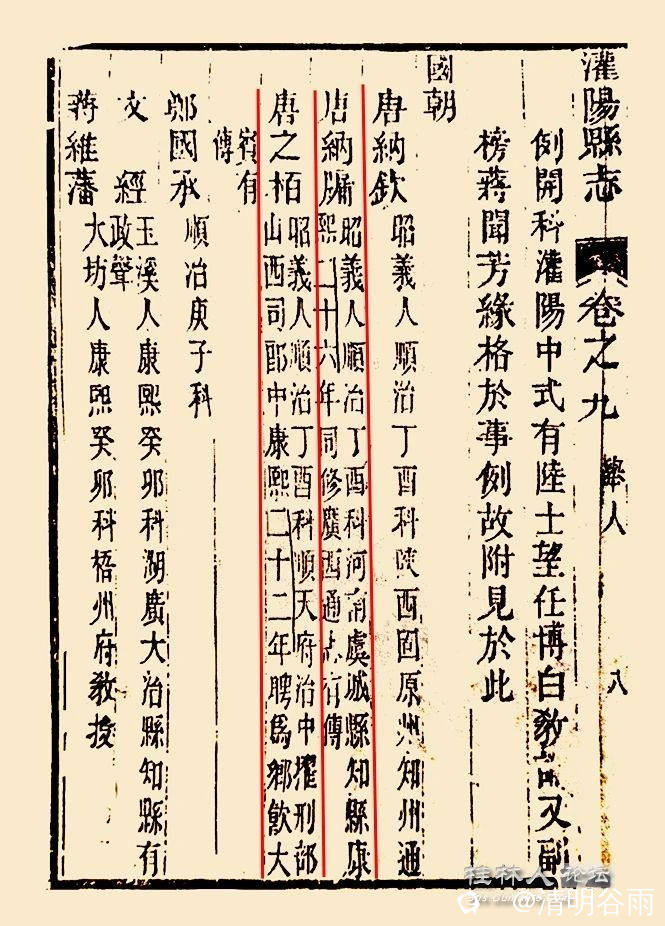 灌陽縣志 卷之九 舉人 八
例開科灌陽中式有陸士望任博白教諭又副
榜蔣聞芳緣格於事例故附見於此
國朝
唐納欽 昭義人順治丁酉科陝西固原州知州通
唐納牖 昭義人順治丁酉科河南虞城縣知縣康
熙二十六年同修廣西通志有傳
唐之栢 昭義人順治丁酉科順天府治中擢刑部
山西司郎中康熙二十二年聘爲鄉飲大
賓有
傳
國承 順治庚子科
文經 玉溪人康熙癸卯科湖廣大冶縣知縣有
政聲
蔣維藩 大坊人康熙癸卯科梧州府教授
桂林人论坛
@清明谷雨